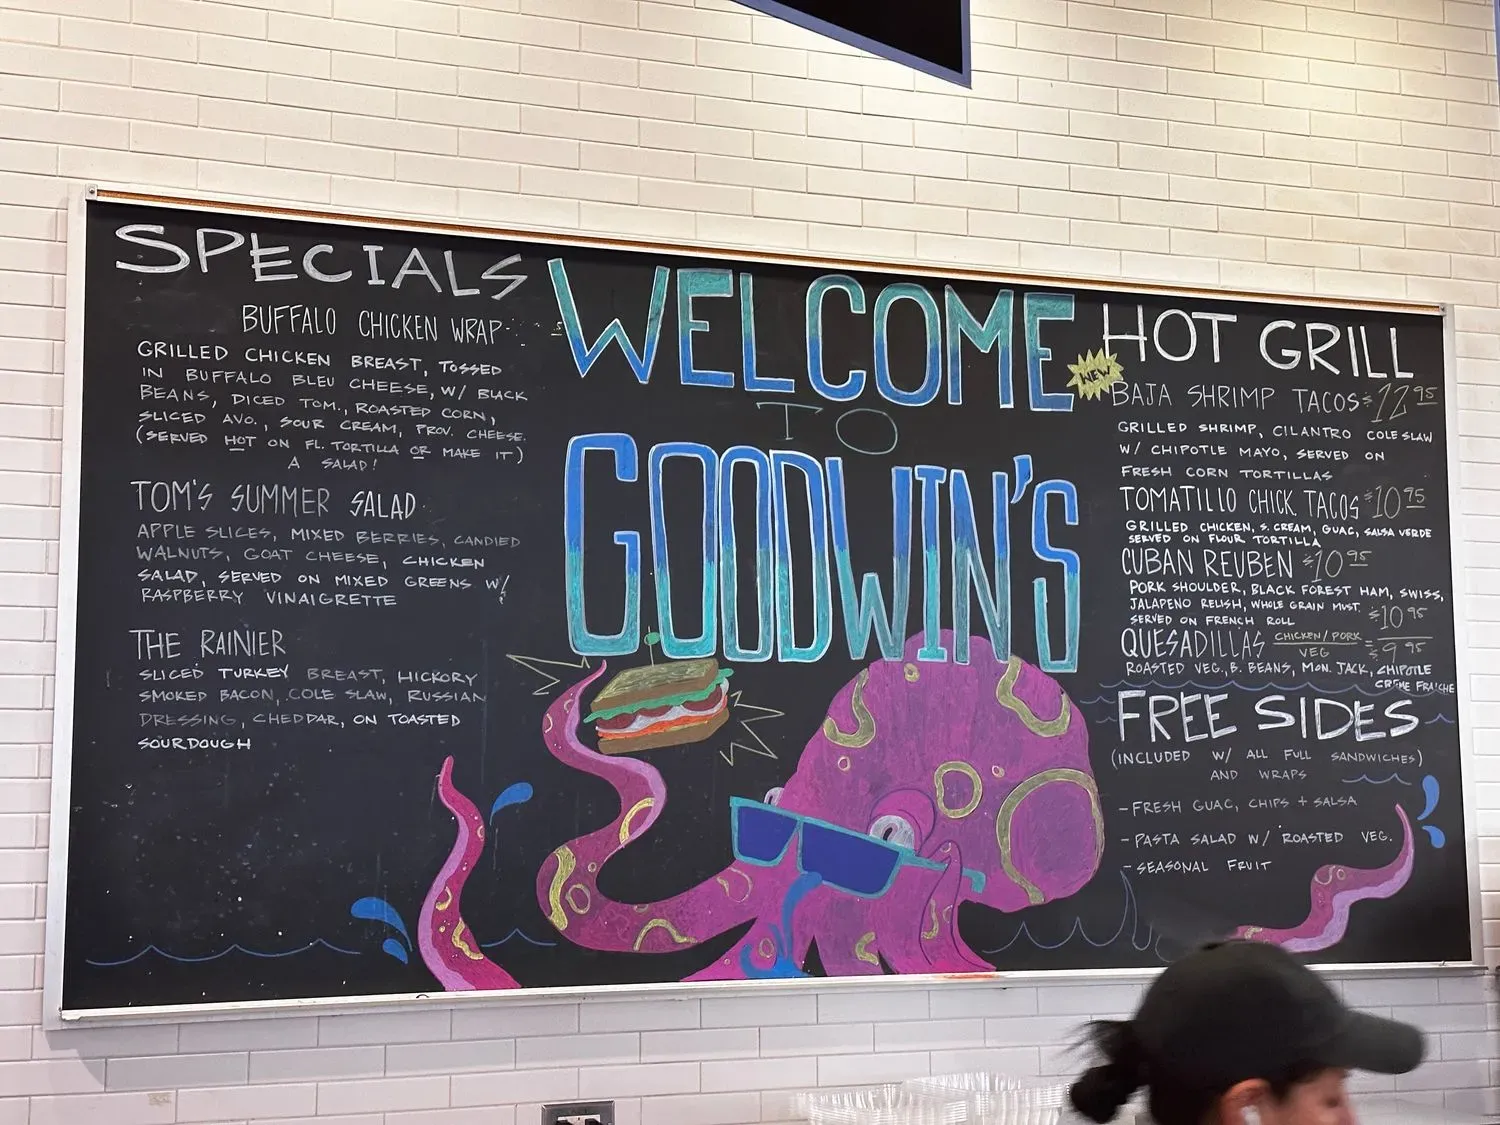 SPECIALS
BUFFALO CHICKEN WRAP
GRILLED CHICKEN BREAST, TOSSED
IN BUFFALO BLEU CHEESE, W/ BLACK
BEANS, DICED TOM., ROASTED CORN,
SLICED AVO., SOUR CREAM, PROV. CHEESE.
(SERVED HOT ON FL. TORTILLA OR MAKE IT)
A SALAD!
TOM'S SUMMER SALAD
APPLE SLICES, MIXED BERRIES, CANDIED
WALNUTS, GOAT CHEESE, CHICKEN
SALAD, SERVED ON MIXED GREENS W/
RASPBERRY VINAIGRETTE
THE RAINIER
SLICED TURKEY BREAST, HICKORY
SMOKED BACON, COLE SLAW, RUSSIAN
DRESSING, CHEDDAR, ON TOASTED
SOURDOUGH
WELCOME
TO
GOODWIN'S
HOT GRILL
NEW
BAJA SHRIMP TACOS $12.95
GRILLED SHRIMP, CILANTRO COLESLAW
W/ CHIPOTLE MAYO, SERVED ON
FRESH CORN TORTILLAS
TOMATILLO CHICK. TACOS $10.95
GRILLED CHICKEN, S. CREAM, GUAC, SALSA VERDE
SERVED ON FLOUR TORTILLA
CUBAN REUBEN $10.95
PORK SHOULDER, BLACK FOREST HAM, SWISS,
JALAPENO RELISH, WHOLE GRAIN MUST.
SERVED ON FRENCH ROLL
QUESADILLAS CHICKEN/PORK $10.95
VEG $9.95
ROASTED VEG., B. BEANS, MON. JACK, CHIPOTLE
CRÈME FRAICHE
FREE SIDES
(INCLUDED W/ ALL FULL SANDWICHES)
AND WRAPS
- FRESH GUAC, CHIPS + SALSA
- PASTA SALAD W/ ROASTED VEG.
- SEASONAL FRUIT